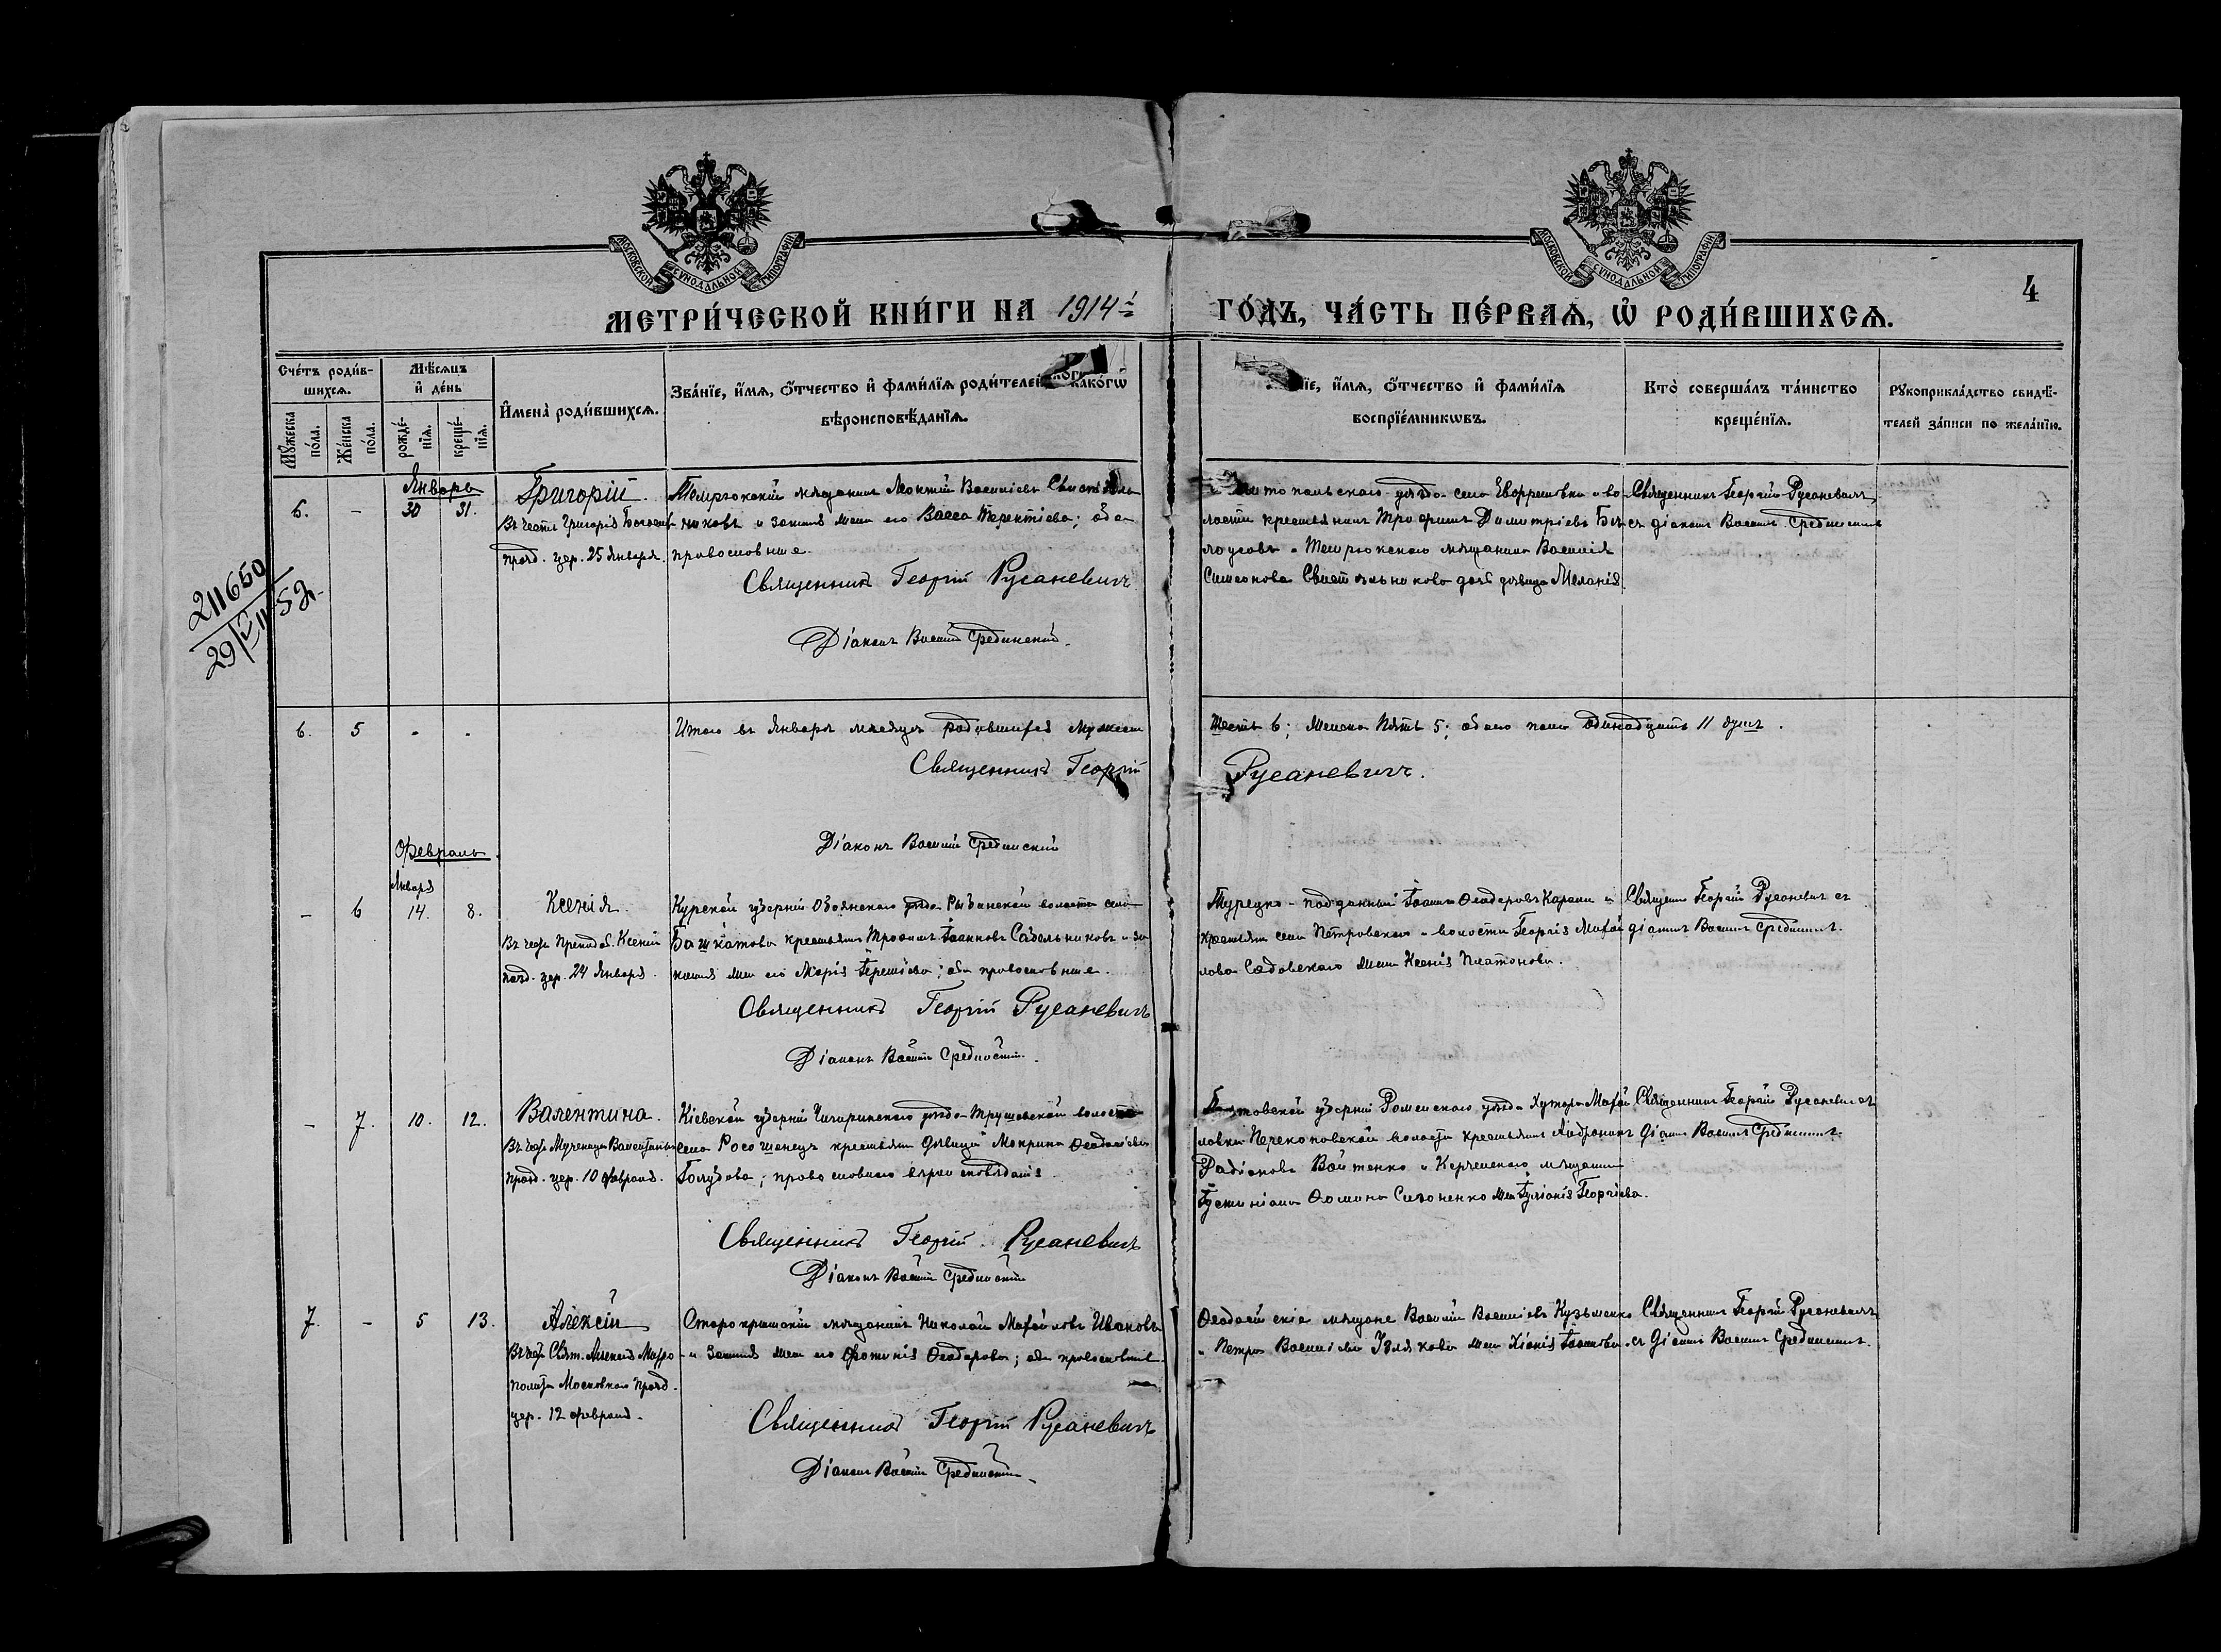 МОСКОВСКОЙ СѴНОДАЛЬНОЙ ТИПОГРАФІИ
МОСКОВСКОЙ СѴНОДАЛЬНОЙ ТИПОГРАФІИ
4
МЕТРИ́ЧЕСКОЙ КНИ́ГИ НА 1914 й
ГО́ДЪ, ЧА́СТЬ ПЕ́РВАѦ, Ѡ҆ РОДИ́ВШИХСѦ.
Сче́тъ роди́в-
шихсѧ.
Мѣ́сѧцъ
и҆ де́нь
Мꙋ́жеска по́ла.
Же́нска по́ла.
рожде́-нїѧ.
креще́-нїѧ.
И҆мена̀ роди́вшихсѧ.
Зва́нїе, и҆́мѧ, ѻ҆́тчество и҆ фами́лїѧ роди́телей како́гѡ
вѣроисповѣ́данїѧ.
їе, и҆́мѧ, ѻ҆́тчество и҆ фами́лїѧ
воспрїе́мникѡвъ.
Кто̀ соверша́лъ та́инство
креще́нїѧ.
Рꙋкоприкла́дство свидѣ́-
телей за́писи по жела́нїю.
Январь
6. - 30 31.
Григорій.
Въ честь Григорія Богосл.
празд. цер. 25 Января.
Темрюкскій мѣщанинъ Леонтій Василіевъ Свистѣль
никовъ и законная жена его Васса Терентіева; оба
православные.
Священникъ Георгій Русаневичъ
Діаконъ Василій Срединскій.
уѣзда села и во-
лости крестьянинъ Трофимъ Димитріевъ Бѣ
лоусовъ и Темрюкскаго мѣщанина Василія
Симеонова Свистѣльникова дочь дѣвица Меланія.
Священникъ Георгій Русаневичъ
съ діакономъ Василіемъ Срединскимъ
211660
29/VIII-52
6. 5 - -
Итого въ Январѣ мѣсяцѣ родившихся мужеска
шесть 6; женска пять 5; обоего пола одинадцать 11 душъ.
Священникъ Георгій
Русаневичъ.
Діаконъ Василій Срединскій
Февраль
Января
- 6 14. 8.
Ксенія.
Въ честь Преподоб. Ксеніи
празд. цер. 24 Января.
Курской губерніи Обоянскаго уѣзда Рыбинской волости села
Башкатова крестьянинъ Трофимъ Іоанновъ Сабельниковъ и за
конная жена его Марія Іереміева; оба православные.
Священникъ Георгій Русаневичъ
Діаконъ Василій Срединскій.
Турецко-подданный Іоаннъ Ѳеодоровъ и
крестьянина села Петровскаго и волости Георгія Михай
лова Садовскаго жена Ксенія Платонова.
Священникъ Георгій Русаневичъ съ
діакономъ Василіемъ Срединскимъ.
- 7. 10. 12.
Валентина.
Въ честь Мученицы Валентины
празд. цер. 10 февраля.
Кіевской губерніи Чигиринскаго уѣзда Трушевской волости
села крестьянка дѣвица Мокрина Ѳеодосіева
Голубова; православнаго вѣроисповѣданія.
Священникъ Георгій Русаневичъ
Діаконъ Василій Срединскій
губерніи Роменскаго уѣзда Хутора Михай
ловки Перекоповской волости крестьянинъ Андроникъ
Радіоновъ Войтенко и Керченскаго мѣщанина
Іустиніана Ѳомина жена Іуліанія Георгіева.
Священникъ Георгій Русаневичъ съ
діакономъ Василіемъ Срединскимъ.
7. - 5 13.
Алексій
Въ честь Свят. Алексія Митро
полита Московскаго празд.
цер. 12 февраля.
Старокрымскій мѣщанинъ Николай Михайловъ Ивановъ
и законная жена его Фотинія Ѳеодорова; оба православные.
Священникъ Георгій Русаневичъ
Діаконъ Василій Срединскій.
Ѳеодосійскіе мѣщане Василій Василіевъ Кузьменко
и Петра Василіева жена Хіонія Іоаннова.
Священникъ Георгій Русаневичъ
съ діакономъ Василіемъ Срединскимъ.